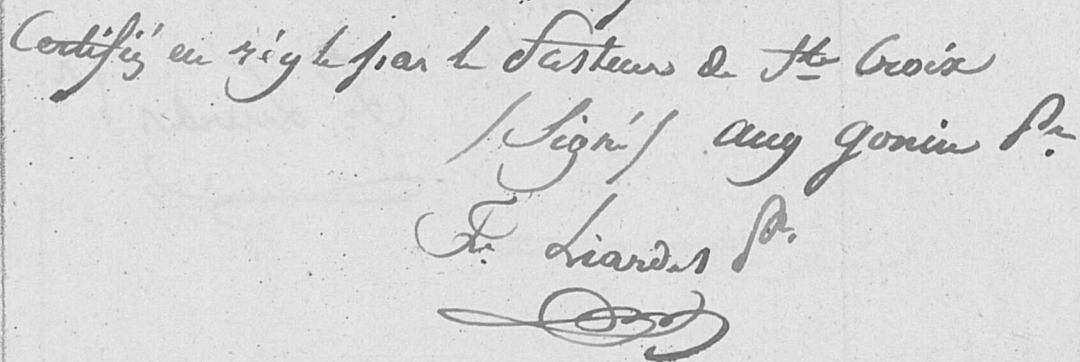 Certifié en règle par le Pasteur de Ste Croix
/Signé/ Aug Gonin Pr.
Fs. Liardet Pr.